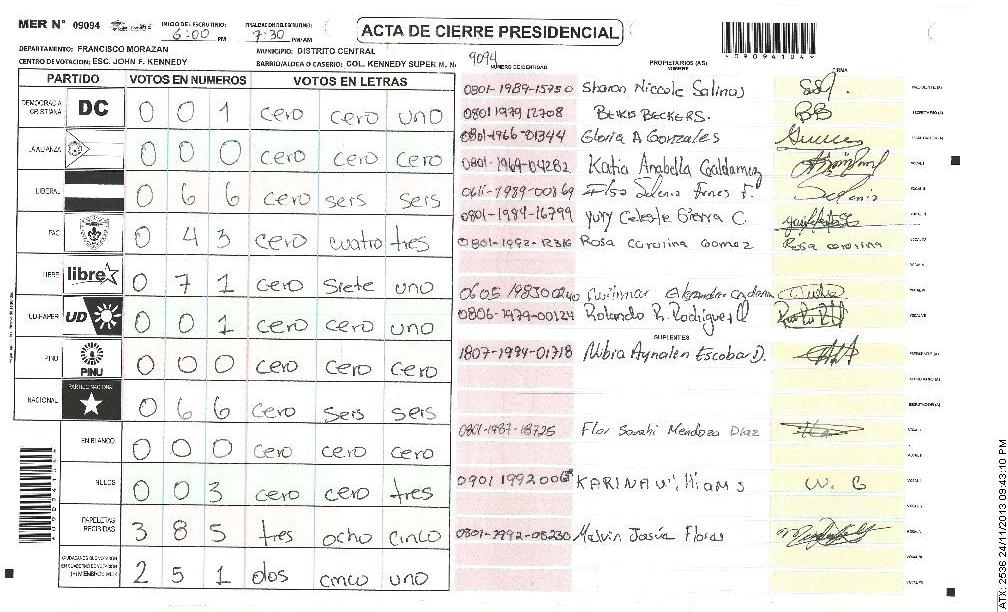 MER N° 09094
INICIO DEL ESCRUTINIO: 6:00 PM
FINALIZACION DEL ESCRUTINIO: 7:30 PM/AM
ACTA DE CIERRE PRESIDENCIAL
DEPARTAMENTO: FRANCISCO MORAZAN
MUNICIPIO: DISTRITO CENTRAL
CENTRO DE VOTACION: ESC. JOHN F. KENNEDY
BARRIO/ALDEA O CASERIO: COL. KENNEDY SUPER M. N
9094
PARTIDO VOTOS EN NUMEROS VOTOS EN LETRAS
DEMOCRACIA CRISTIANA DC 0 0 1 cero cero uno
LA ALIANZA 0 0 0 cero cero cero
LIBERAL 0 6 6 cero seis seis
PAC 0 4 3 cero cuatro tres
LIBRE libre 0 7 1 cero siete uno
UD-FAPER UD 0 0 1 cero cero uno
PINU PINU 0 0 0 cero cero cero
NACIONAL PARTIDO NACIONAL 0 6 6 cero seis seis
EN BLANCO 0 0 0 cero cero cero
NULOS 0 0 3 cero cero tres
PAPELETAS RECIBIDAS 3 8 5 tres ocho cinco
2 5 1 dos cinco uno
NUMERO DE IDENTIDAD PROPIETARIOS (AS) NOMBRE FIRMA
0801-1989-15750 Sharon Niccole Salinas
0801 1979 12708 BECKERS.
0801-1966-01344 Gloria A Gonzales
0801-1969-04282 Katia Anabella Galdamez
0611-1989-00869
0801-1984-16799 Yury Celeste Sierra C.
0801-1992-12316 Rosa carolina Gomez Rosa carolina
0605 1983 00240
0806-1979-00124 Rolando R. Rodriguez
SUPLENTES
1807-1994-01718 Nibia Aynalen Escobar D.
0801-1987-18725 Flor Sarahi Mendoza Díaz
0901 1992 006 KARINA williams W. G
0801-1992-05230 Melvin Josúe Flores
ATX: 2536 24/11/2013 09:43:10 PM